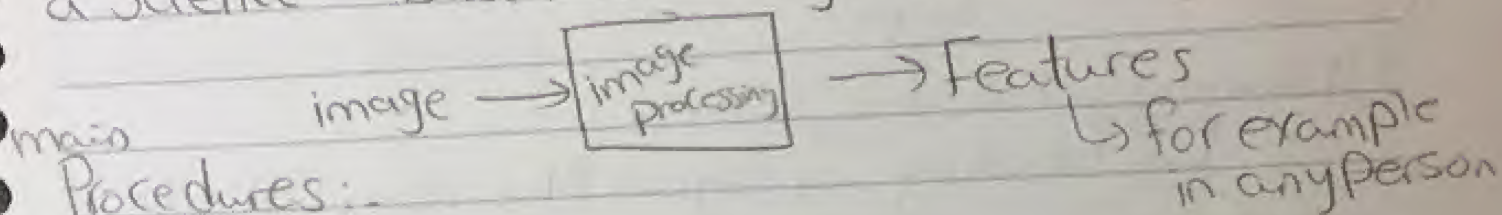 image → image processing → Features
↳ for example
in any person
main
Procedures:-